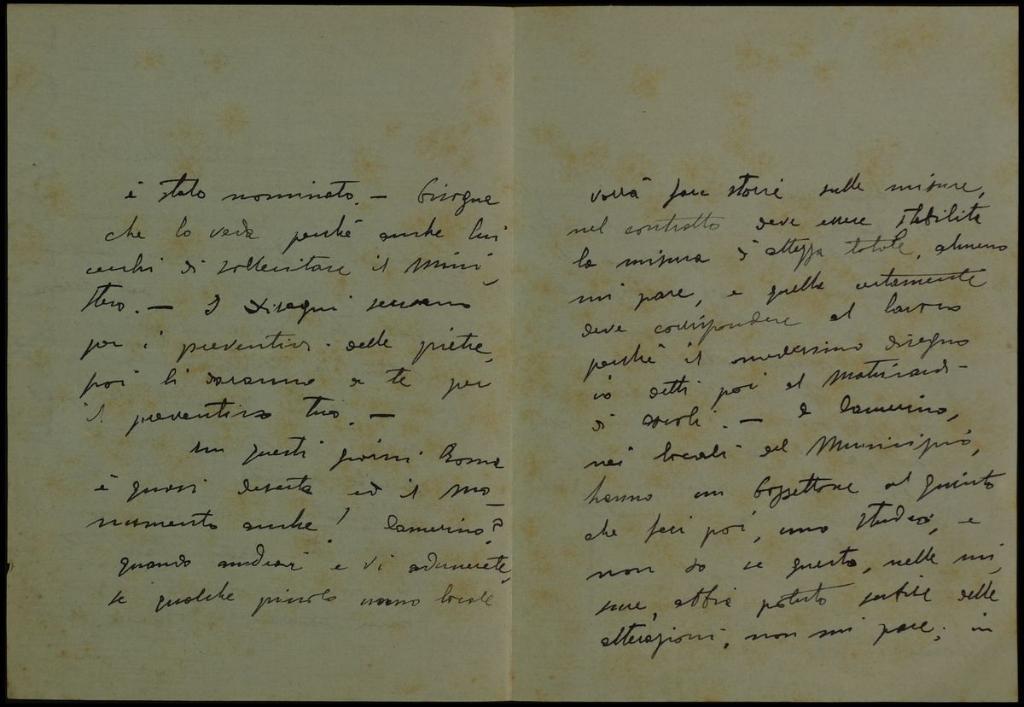 è stato nominato. — Bisogna
che lo veda perché anche lui
cerchi di sollecitare il Mini
stero. — I disegni servono
per i preventivi delle pietre,
poi li daranno a te per
il preventivo tuo. —
In questi giorni Roma
è quasi deserta ed il mo
numento anche! Camerino?
quando andrai e vi adunerete,
se qualche piccolo uomo locale
vorrà fare storie sulle misure,
nel contratto deve essere stabilita
la misura d'altezza totale, almeno
mi pare, e quella certamente
deve corrispondere al lavoro
perché il medesimo disegno
io detti poi al
di Ascoli. — A Camerino,
nei locali del Municipio,
hanno un bozzettone al quinto
che feci poi, uno studio, e
non so se questo, nelle mi
sure, abbia potuto subire delle
alterazioni, non mi pare; in